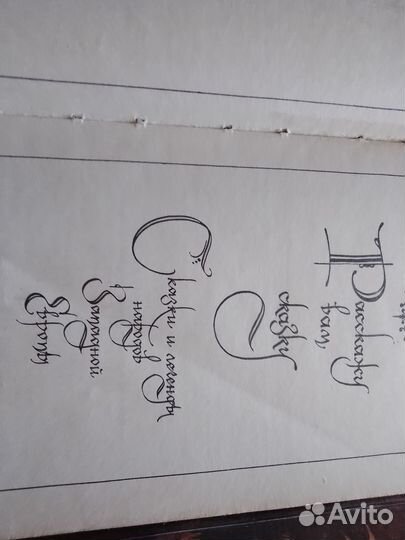 Расскажу
вам
сказку
Сказки и легенды
народов
Западной
Европы
Avito